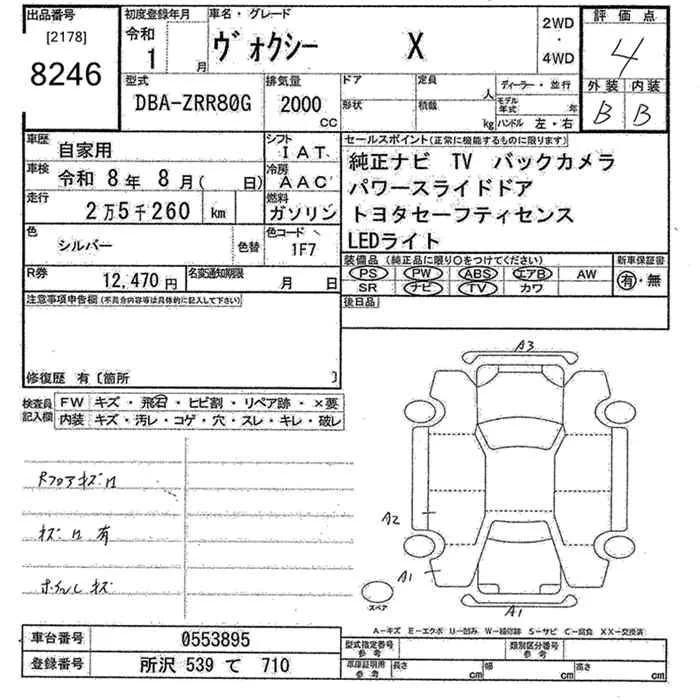 出品番号
[2178]
8246
初度登録年月
令和
1
月
車名・グレード
ヴォクシー X
2WD
・
4WD
評価点
4
外装 内装
B B
型式
DBA-ZRR80G
排気量
2000
CC
ドア
形状
定員
人
積載
kg
ディーラー・並行
モデル年式
年
ハンドル 左・右
車歴
自家用
シフト
IAT
車検
令和 8年 8月( 日)
冷房
AAC
走行
2万5千260 km
燃料
ガソリン
色
シルバー
色替
色コード
1F7
R券
12,470円
名変通知期限
月 日
セールスポイント(正常に機能するものに限ります)
純正ナビ TV バックカメラ
パワースライドドア
トヨタセーフティセンス
LEDライト
装備品(純正品に限り○をつけてください)
PS PW ABS エアB AW
SR ナビ TV カワ
新車保証書
有・無
後日品
注意事項申告欄(不具合内容等は具体的に記入して下さい)
修復歴 有〔箇所 〕
検査員
記入欄
FW キズ・飛石・ヒビ割・リペア跡・×要
内装 キズ・汚レ・コゲ・穴・スレ・キレ・破レ
Rフロアキズ
キズ 有
ホイルキズ
A3
A2
A1
A1
スペア
A－キズ E－エクボ U－凹み W－補修跡 S－サビ C－腐食 XX－交換済
車台番号
0553895
登録番号
所沢 539 て 710
型式指定番号
参考
類別区分番号
参考
車庫証明用
参考
長さ
cm
幅
cm
高さ
cm